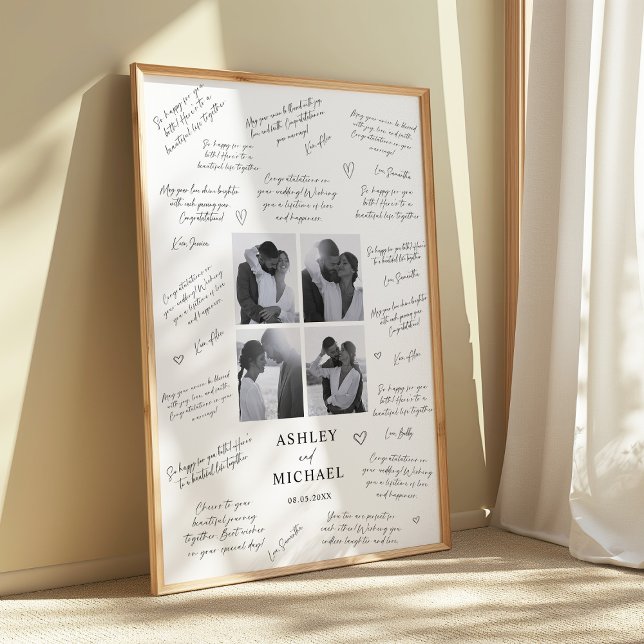 So happy for you
both! Here's to a
beautiful life together
May your union be blessed with joy,
love and faith. Congratulations on
your marriage!
Xxxx
May your union be blessed
with joy, love, and faith.
Congratulations on your
marriage!
So happy for you
both! Here's to a
beautiful life together
Love, Samantha
Congratulations on
your wedding! Wishing
you a lifetime of love
and happiness.
So happy for you
both! Here's to a
beautiful life together
May your love shine brighter
with each passing year.
Congratulations!
Xxxx, Jessica
So happy for you both! Here's
to a beautiful life together
Love, Samantha
Congratulations on
your wedding! Wishing
you a lifetime of love
and happiness.
May your love shine brighter
with each passing year.
Congratulations!
May your union be blessed
with joy, love, and faith.
Congratulations on your
marriage!
So happy for you
both! Here's to a
beautiful life together
Love, Bobby
ASHLEY
and
MICHAEL
08.05.20XX
So happy for you both! Here's
to a beautiful life together
Congratulations on
your wedding! Wishing
you a lifetime of love
and happiness.
Cheers to your
beautiful journey
together. Best wishes
on your special day!
Love, Samantha
You two are perfect for
each other! Wishing you
endless laughter and love.